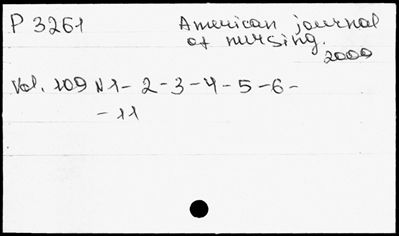 P 3261 American journal
of nursing.
2000
Vol. 109 N 1 - 2 - 3 - 4 - 5 - 6 -
- 11